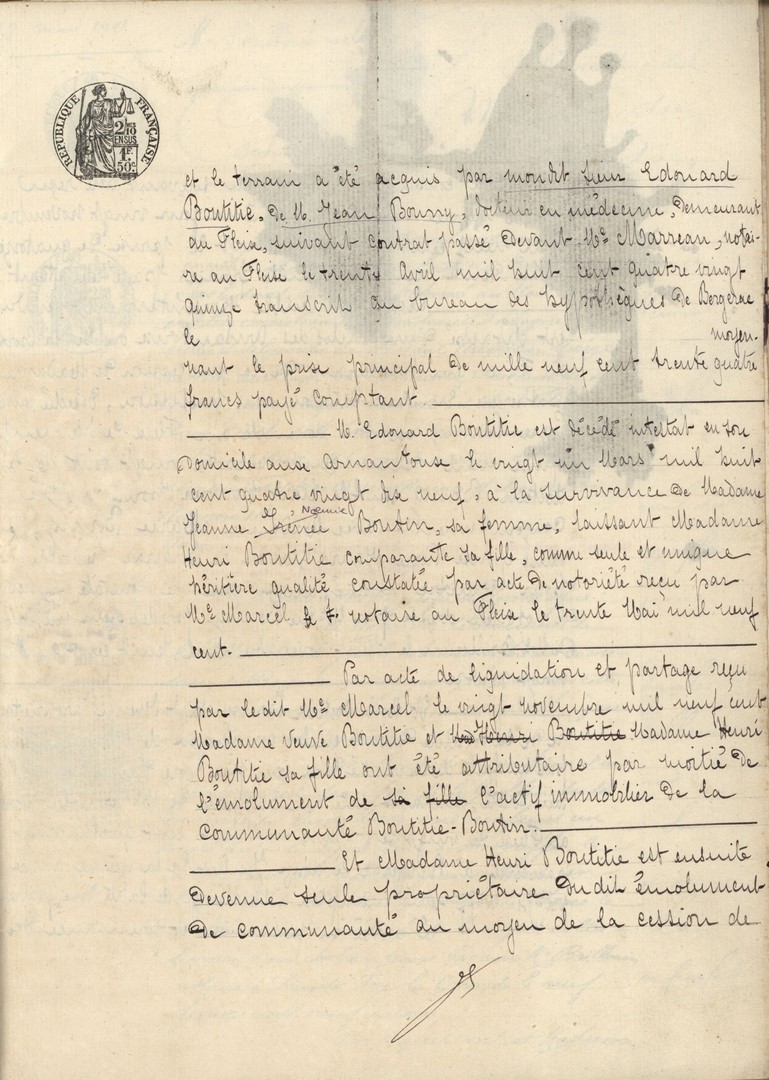 RÉPUBLIQUE FRANÇAISE
2/10
EN SUS
1F.
50c.
et le terrain a été acquis par mondit sieur Edouard
Boutitie, de M. Jean Bonny, docteur en médecine, demeurant
au Fleix, suivant contrat passé devant Me Marreau, notai-
re au Fleix le trente Avril mil huit cent quatre vingt
quinze transcrit au bureau des hypothèques de Bergerac
le moyen-
nant le prix principal de mille neuf cent trente quatre
francs payé comptant
M. Edouard Boutitie est décédé intestat en son
domicile aux le vingt un Mars mil huit
cent quatre vingt dix neuf, à la survivance de Madame
Jeanne Noemie Boutin, sa femme, laissant Madame
Henri Boutitie comparante sa fille, comme seule et unique
héritière qualité constatée par acte de notoriété reçu par
Me Marcel notaire au Fleix le trente Mai mil neuf
cent.
Par acte de liquidation et partage reçu
par le dit Me Marcel le vingt novembre mil neuf cent
Madame veuve Boutitie et Henri Boutitie Madame Henri
Boutitie sa fille ont été attributaire par moitié de
l'émolument de sa fille l'actif immobilier de la
communauté Boutitie-Boutin.
Et Madame Henri Boutitie est ensuite
devenue seule propriétaire dudit émolument
de communauté au moyen de la cession de